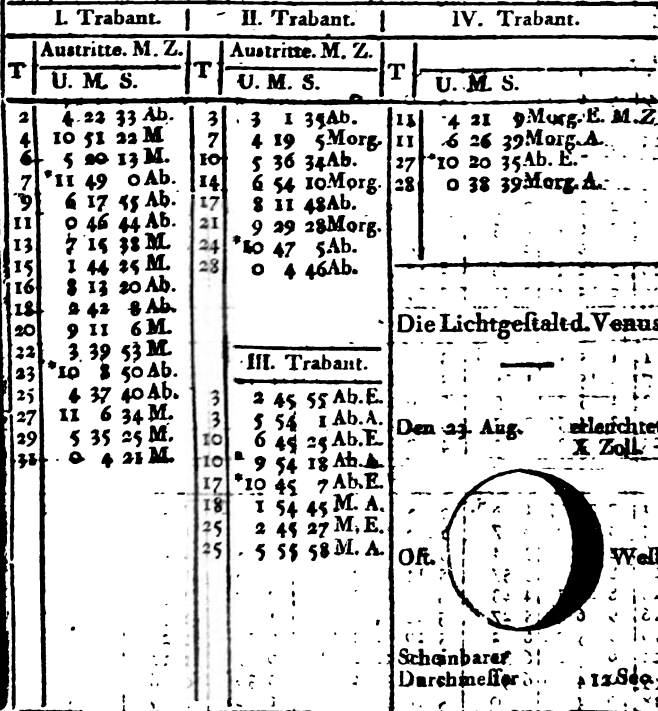 I. Trabant.
Austritte. M. Z.
T U. M. S.
2 4 22 33 Ab.
4 10 51 22 M
6 5 20 13 M.
7 *11 49 0 Ab.
9 6 17 55 Ab.
11 0 46 44 Ab.
13 7 15 38 M.
15 1 44 25 M.
16 8 13 20 Ab.
18 2 42 8 Ab.
20 9 11 6 M.
22 3 39 53 M.
23 *10 8 50 Ab.
25 4 37 40 Ab.
27 11 6 34 M.
29 5 35 25 M.
31 0 4 21 M.
II. Trabant.
Austritte. M. Z.
T U. M. S.
3 3 1 35 Ab.
7 4 19 5 Morg.
10 5 36 34 Ab.
14 6 54 10 Morg.
17 8 11 48 Ab.
21 9 29 28 Morg.
24 *10 47 5 Ab.
28 0 4 46 Ab.
III. Trabant.
3 2 45 55 Ab. E.
3 5 54 1 Ab. A.
10 6 45 25 Ab. E.
10 * 9 54 18 Ab. A.
17 *10 45 7 Ab. E.
18 1 54 45 M. A.
25 2 45 27 M. E.
25 5 55 58 M. A.
IV. Trabant.
T U. M. S.
11 4 21 9 Morg. E. M. Z.
11 6 26 39 Morg. A.
27 *10 20 35 Ab. E.
28 0 38 39 Morg. A.
Die Lichtgeſtalt d. Venus
Den 23. Aug. erleuchtet
X Zoll.
Oſt. Weſt
Scheinbarer
Durchmeſſer 12 Sec.